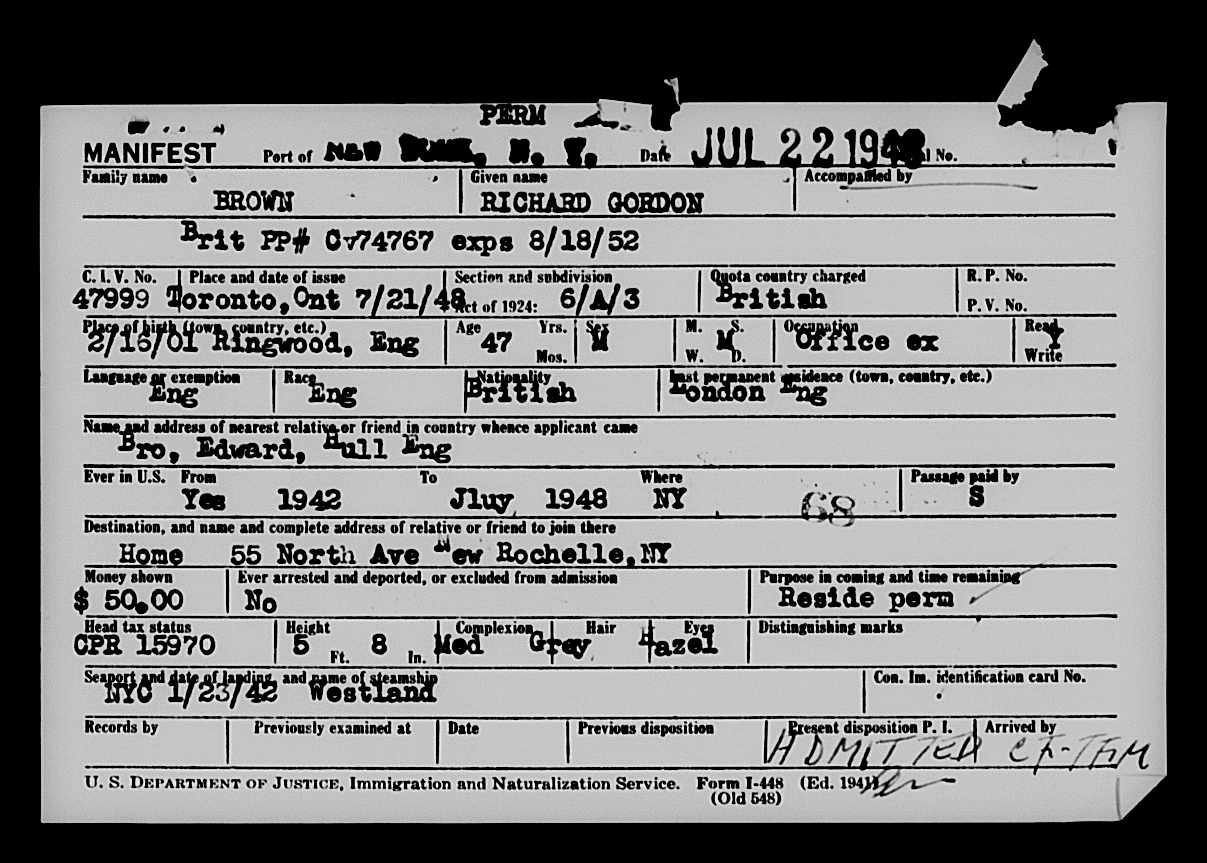 PERM
MANIFEST Port of NEW YORK, N. Y. Date JUL 22 1948 No.
Family name Given name Accompanied by
BROWN RICHARD GORDON
Brit PP# Cv74767 exps 8/18/52
C. I. V. No. Place and date of issue Section and subdivision Quota country charged R. P. No.
47999 Toronto, Ont 7/21/48 Act of 1924: 6/A/3 British P. V. No.
Place of birth (town, country, etc.) Age Yrs. Sex M. S. Occupation Read
2/16/01 Ringwood, Eng 47 Mos. M W. M D. Office ex Y Write
Language or exemption Race Nationality Last permanent residence (town, country, etc.)
Eng Eng British London Eng
Name and address of nearest relative or friend in country whence applicant came
Bro, Edward, Hull Eng
Ever in U.S. From To Where Passage paid by
Yes 1942 Jluy 1948 NY 68 S
Destination, and name and complete address of relative or friend to join there
Home 55 North Ave New Rochelle, NY
Money shown Ever arrested and deported, or excluded from admission Purpose in coming and time remaining
$ 50.00 No Reside perm
Head tax status Height Complexion Hair Eyes Distinguishing marks
CPR 15970 5 Ft. 8 In. Med Grey Hazel
Seaport and date of landing, and name of steamship Con. Im. identification card No.
NYC 1/23/42 Westland
Records by Previously examined at Date Previous disposition Present disposition P. I. Arrived by
ADMITTED
U. S. DEPARTMENT OF JUSTICE, Immigration and Naturalization Service. Form I-448 (Ed. 1941)
(Old 548)